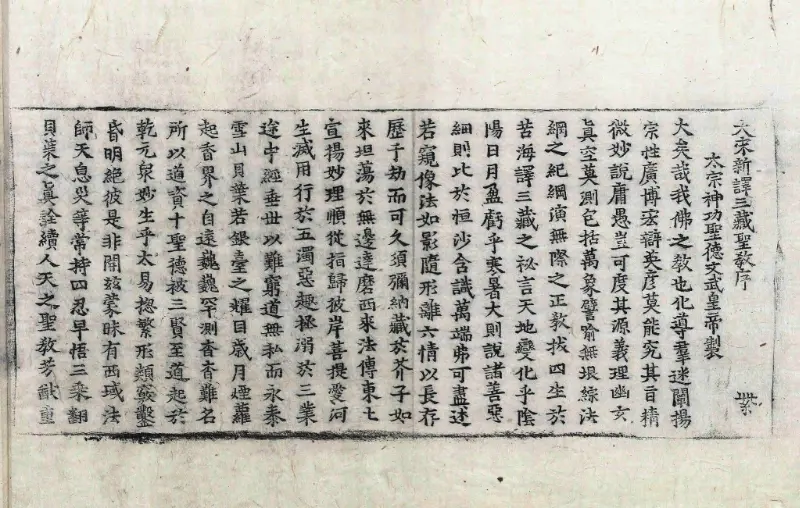 大宋新譯三藏聖敎序
太宗神功聖德文武皇帝製
大矣哉我佛之敎也化導羣迷闡揚
宗性廣博宏辯英彦莫能究其旨精
微妙說庸愚豈可度其源義理幽玄
眞空莫測包括萬象譬喻無垠綜法
網之紀綱演無際之正敎拔四生於
苦海譯三藏之祕言天地變化乎陰
陽日月盈虧乎寒暑大則說諸善惡
細則比於恒沙含識萬端弗可盡述
若窺像法如影隨形離六情以長存
歷千劫而可久須彌納藏於芥子如
來坦蕩於無邊達磨西來法傳東土
宣揚妙理順從指歸彼岸菩提愛河
生滅用行於五濁惡趣拯溺於三業
途中經垂世以難窮道無私而永泰
雪山貝葉若銀臺之耀目歲月煙蘿
起香界之自遠巍巍罕測杳杳難名
所以道資十聖德被三賢至道起於
乾元衆妙生乎太易揔繁形類竅鑿
昏明絶彼是非開兹蒙昧有西域法
師天息災等常持四忍早悟三乘翻
貝葉之眞詮續人天之聖敎芳猷重